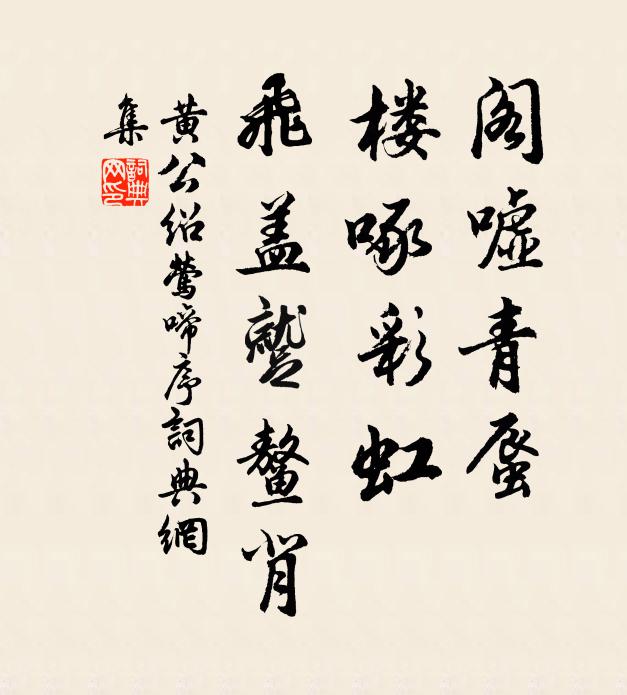 阁嘘青蜃
楼啄彩虹
飞盖蹙鳌背
黄公绍莺啼序詞典網
集
詞典
网印